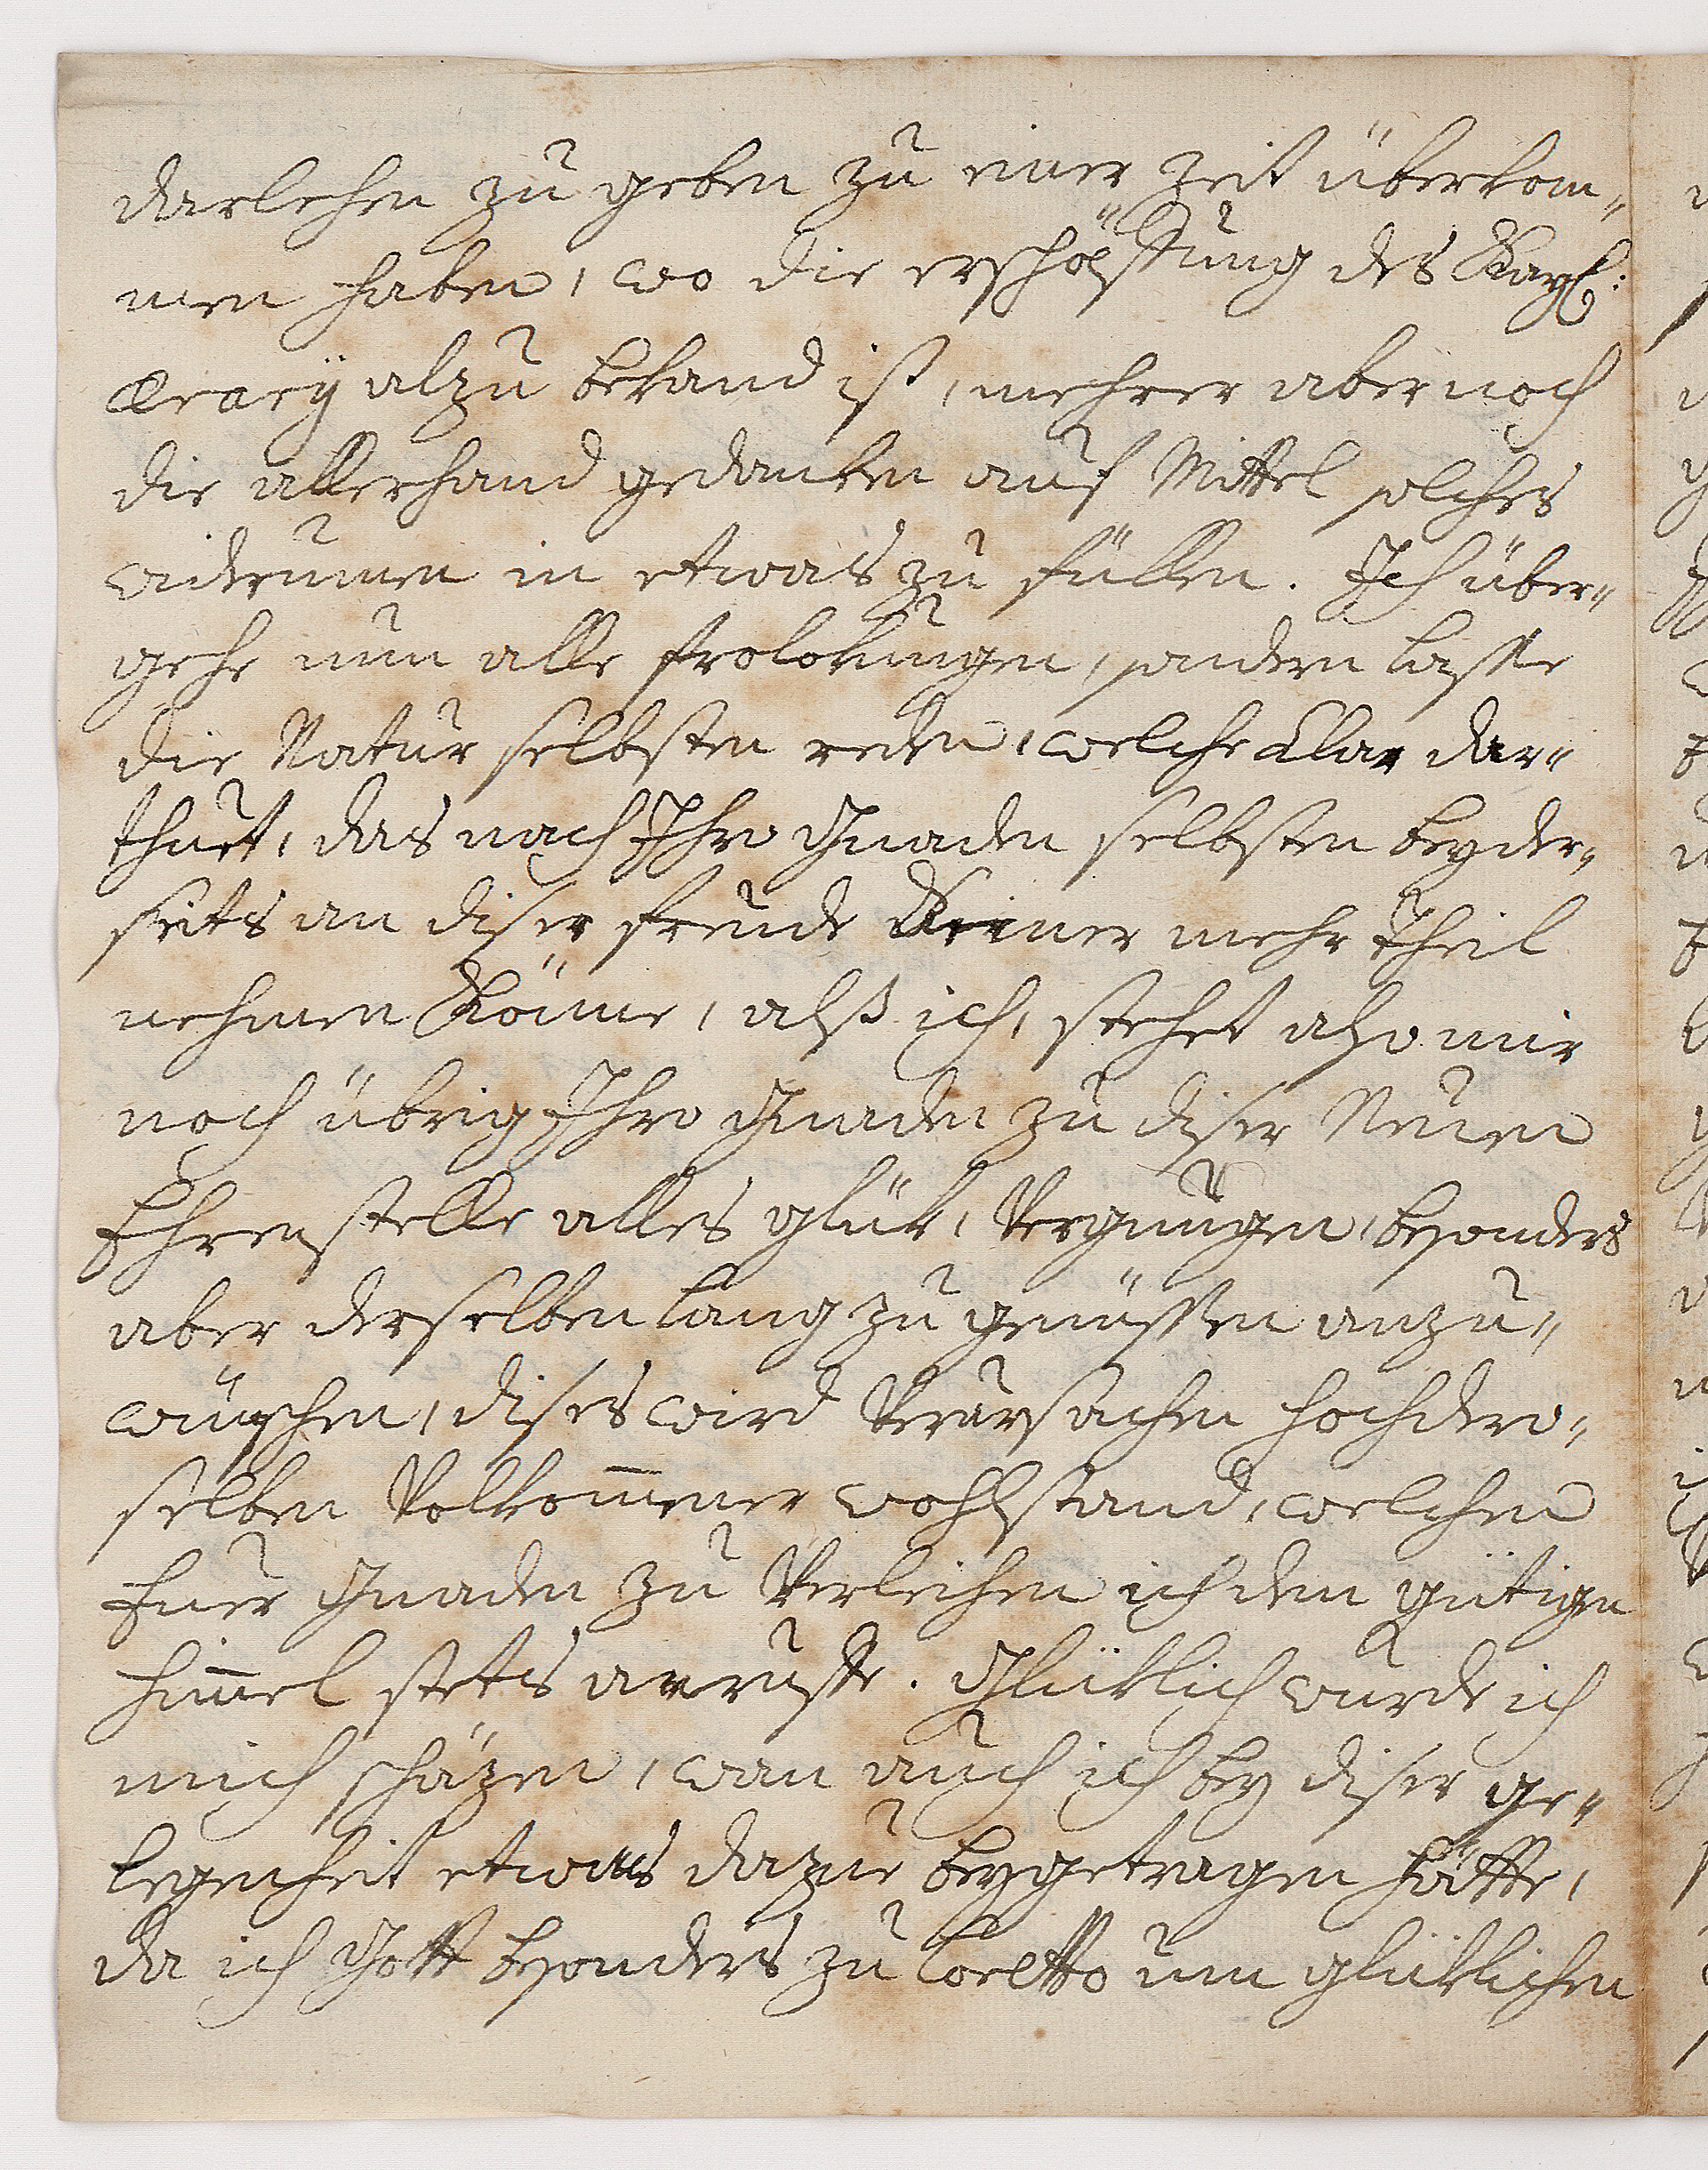 darlehen zu geben zu einer Zeit überkom„
men haben, wo die erschöpffung des Kayl:
Ærarÿ alzu bekand ist, mehrer aber noch
die allerhand gedanken auf Mittel solches
widerumen in etwas zu füllen. Ich über„
gehe nun alle frolokungen, sondern lasse
die Natur selbsten reden, welche klar dar„
thuet, das nach Ihro Gnaden selbsten beyder„
seits an diser freude Keiner mehr Theil
nehmen Könne, alß ich, stehet also mir
noch übrig Ihro Gnaden zu diser Neuen
Ehrenstelle alles glük, Vergnügen, besonders
aber derselben lang zu genüssen anzu„
wünschen, dises wird Verursachen hochdero„
selben Volkom̅ener wohlstand, welchen
Euer Gnaden zu Verleihen ich den gütigen
Him̅el stets anruffe. Glüklich wurde ich
mich schäzen, wan auch ich bey diser ge„
legenheit etwas dazue beygetragen hätte,
da ich Gott besonders zu Loretto um glüklichen